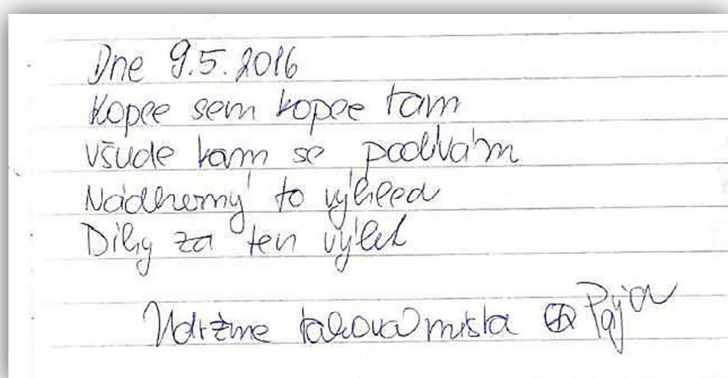 Dne 9.5.2016
Kopee sem kopee tam
všude kam se podívám
Nádherný to výhled
Díky za ten výlet
Udržme taková místa Pája